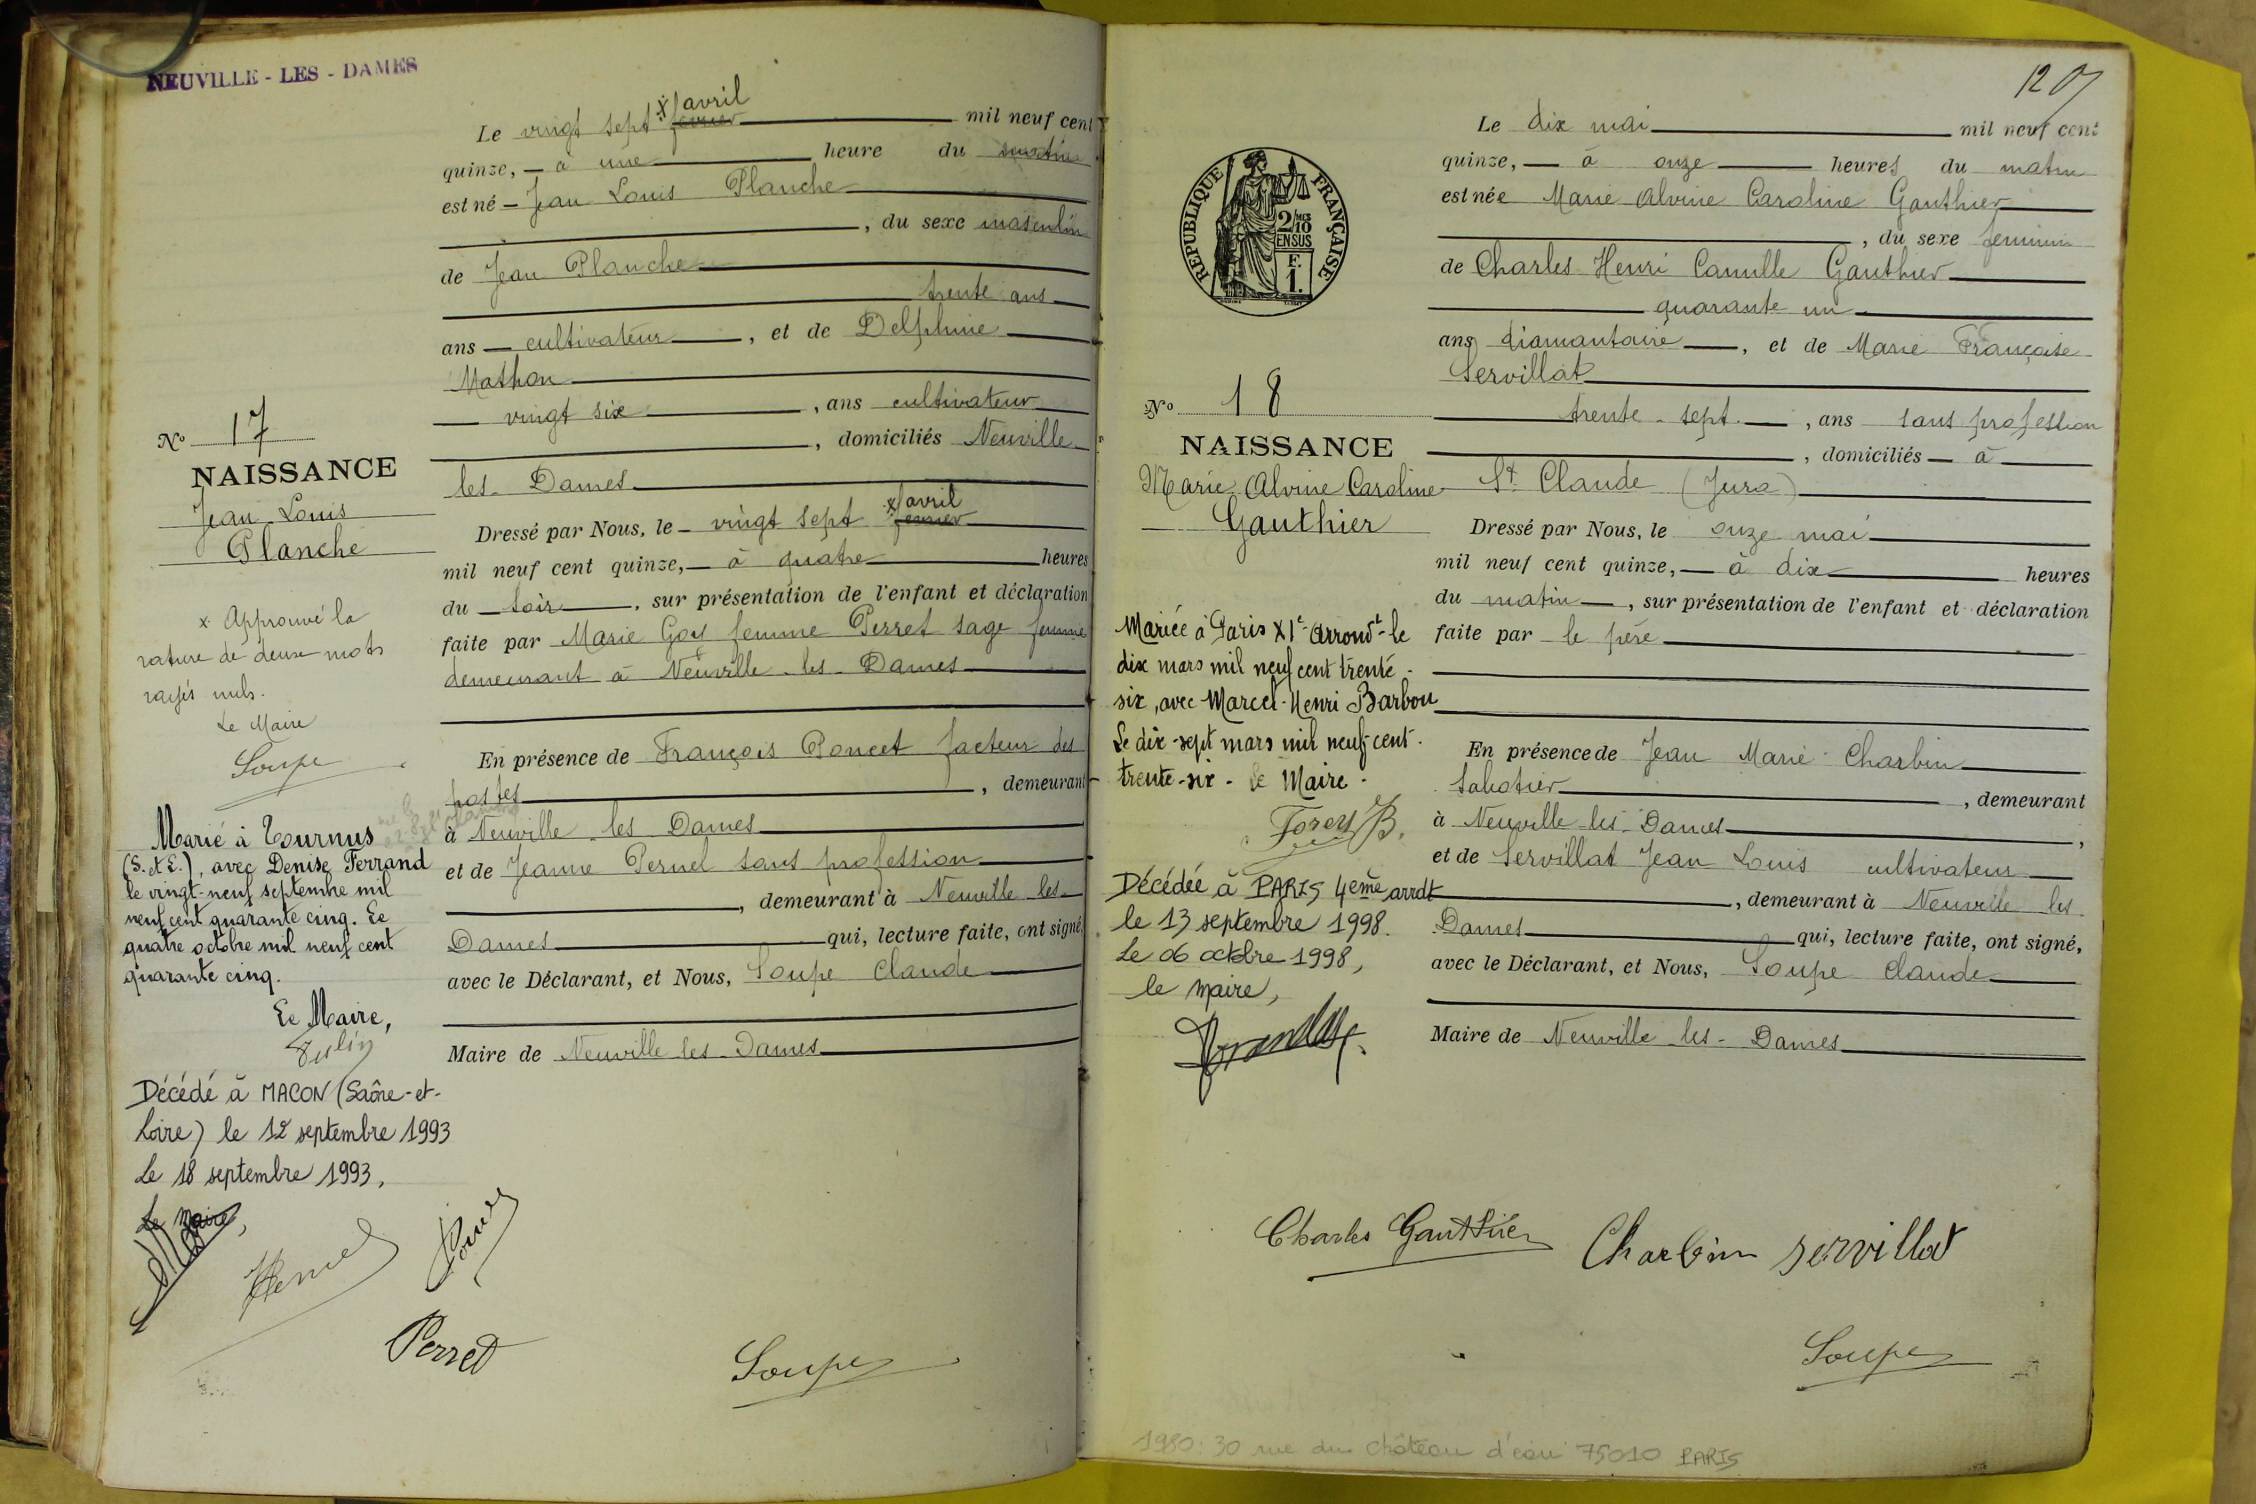 NEUVILLE - LES - DAMES
Le vingt sept x février avril mil neuf cent
quinze, à une heure du matin
est né Jean Louis Planche
, du sexe masculin
de Jean Planche
trente ans
ans cultivateur , et de Delphine
Mathon
vingt six , ans cultivateur
, domiciliés Neuville
les Dames
Dressé par Nous, le vingt sept x février avril
mil neuf cent quinze, à quatre heures
du soir , sur présentation de l'enfant et déclaration
faite par Marie Goy femme Perret sage femme
demeurant à Neuville les Dames
En présence de François Poncet facteur des
postes , demeurant
à Neuville les Dames
et de Jeanne Pernel sans profession
, demeurant à Neuville les
Dames qui, lecture faite, ont signé,
avec le Déclarant, et Nous, Soupe Claude
Maire de Neuville les Dames
No 17
NAISSANCE
Jean Louis
Planche
x Approuvé la
rature de deux mots
rayés nuls.
Le Maire
Soupe
Marié à Tournus
(S. et L.), avec Denise Ferrand
le vingt-neuf septembre mil
neuf cent quarante cinq. Le
quatre octobre mil neuf cent
quarante cinq.
Le Maire,
Décédé à MACON (Saône-et-
Loire) le 12 septembre 1993
Le 18 septembre 1993,
Le Maire,
Pernel
Poncet
Perret
Soupe
1207
REPUBLIQUE FRANÇAISE
2/10
EN SUS
F.
1.
No 18
NAISSANCE
Marie Alvine Caroline
Gauthier
Mariée à Paris XIe arrondt le
dix mars mil neuf cent trente
six, avec Marcel-Henri Barbou
Le dix-sept mars mil neuf cent
trente-six - Le Maire -
Décédée à PARIS 4eme arrdt
le 13 septembre 1998.
Le 06 octobre 1998,
le maire,
Le dix mai mil neuf cent
quinze, à onze heures du matin
est née Marie Alvine Caroline Gauthier
, du sexe feminin
de Charles Henri Camille Gauthier
quarante un
ans diamantaire , et de Marie Françoise
Servillat
trente-sept , ans sans profession
, domiciliés à
St Claude (Jura)
Dressé par Nous, le onze mai
mil neuf cent quinze, à dix heures
du matin , sur présentation de l'enfant et déclaration
faite par le père
En présence de Jean Marie Charbin
sabotier , demeurant
à Neuville les Dames ,
et de Servillat Jean Louis cultivateur
, demeurant à Neuville les
Dames qui, lecture faite, ont signé,
avec le Déclarant, et Nous, Soupe Claude
Maire de Neuville les - Dames
Charles Gauthier
Charbin Servillat
Soupe
1980 : 30 rue du château d'eau 75010 PARIS